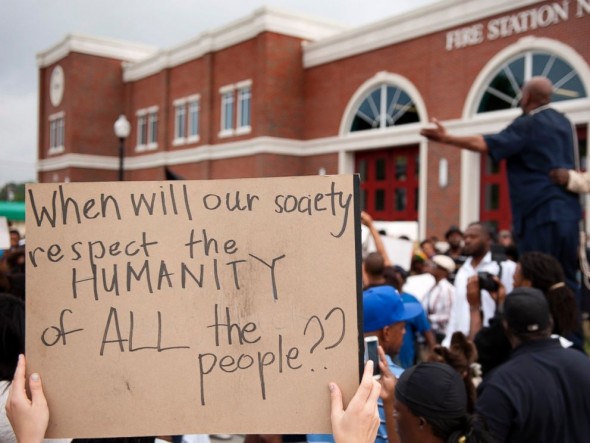 FIRE STATION
When will our society
respect the
HUMANITY
of ALL the
people??